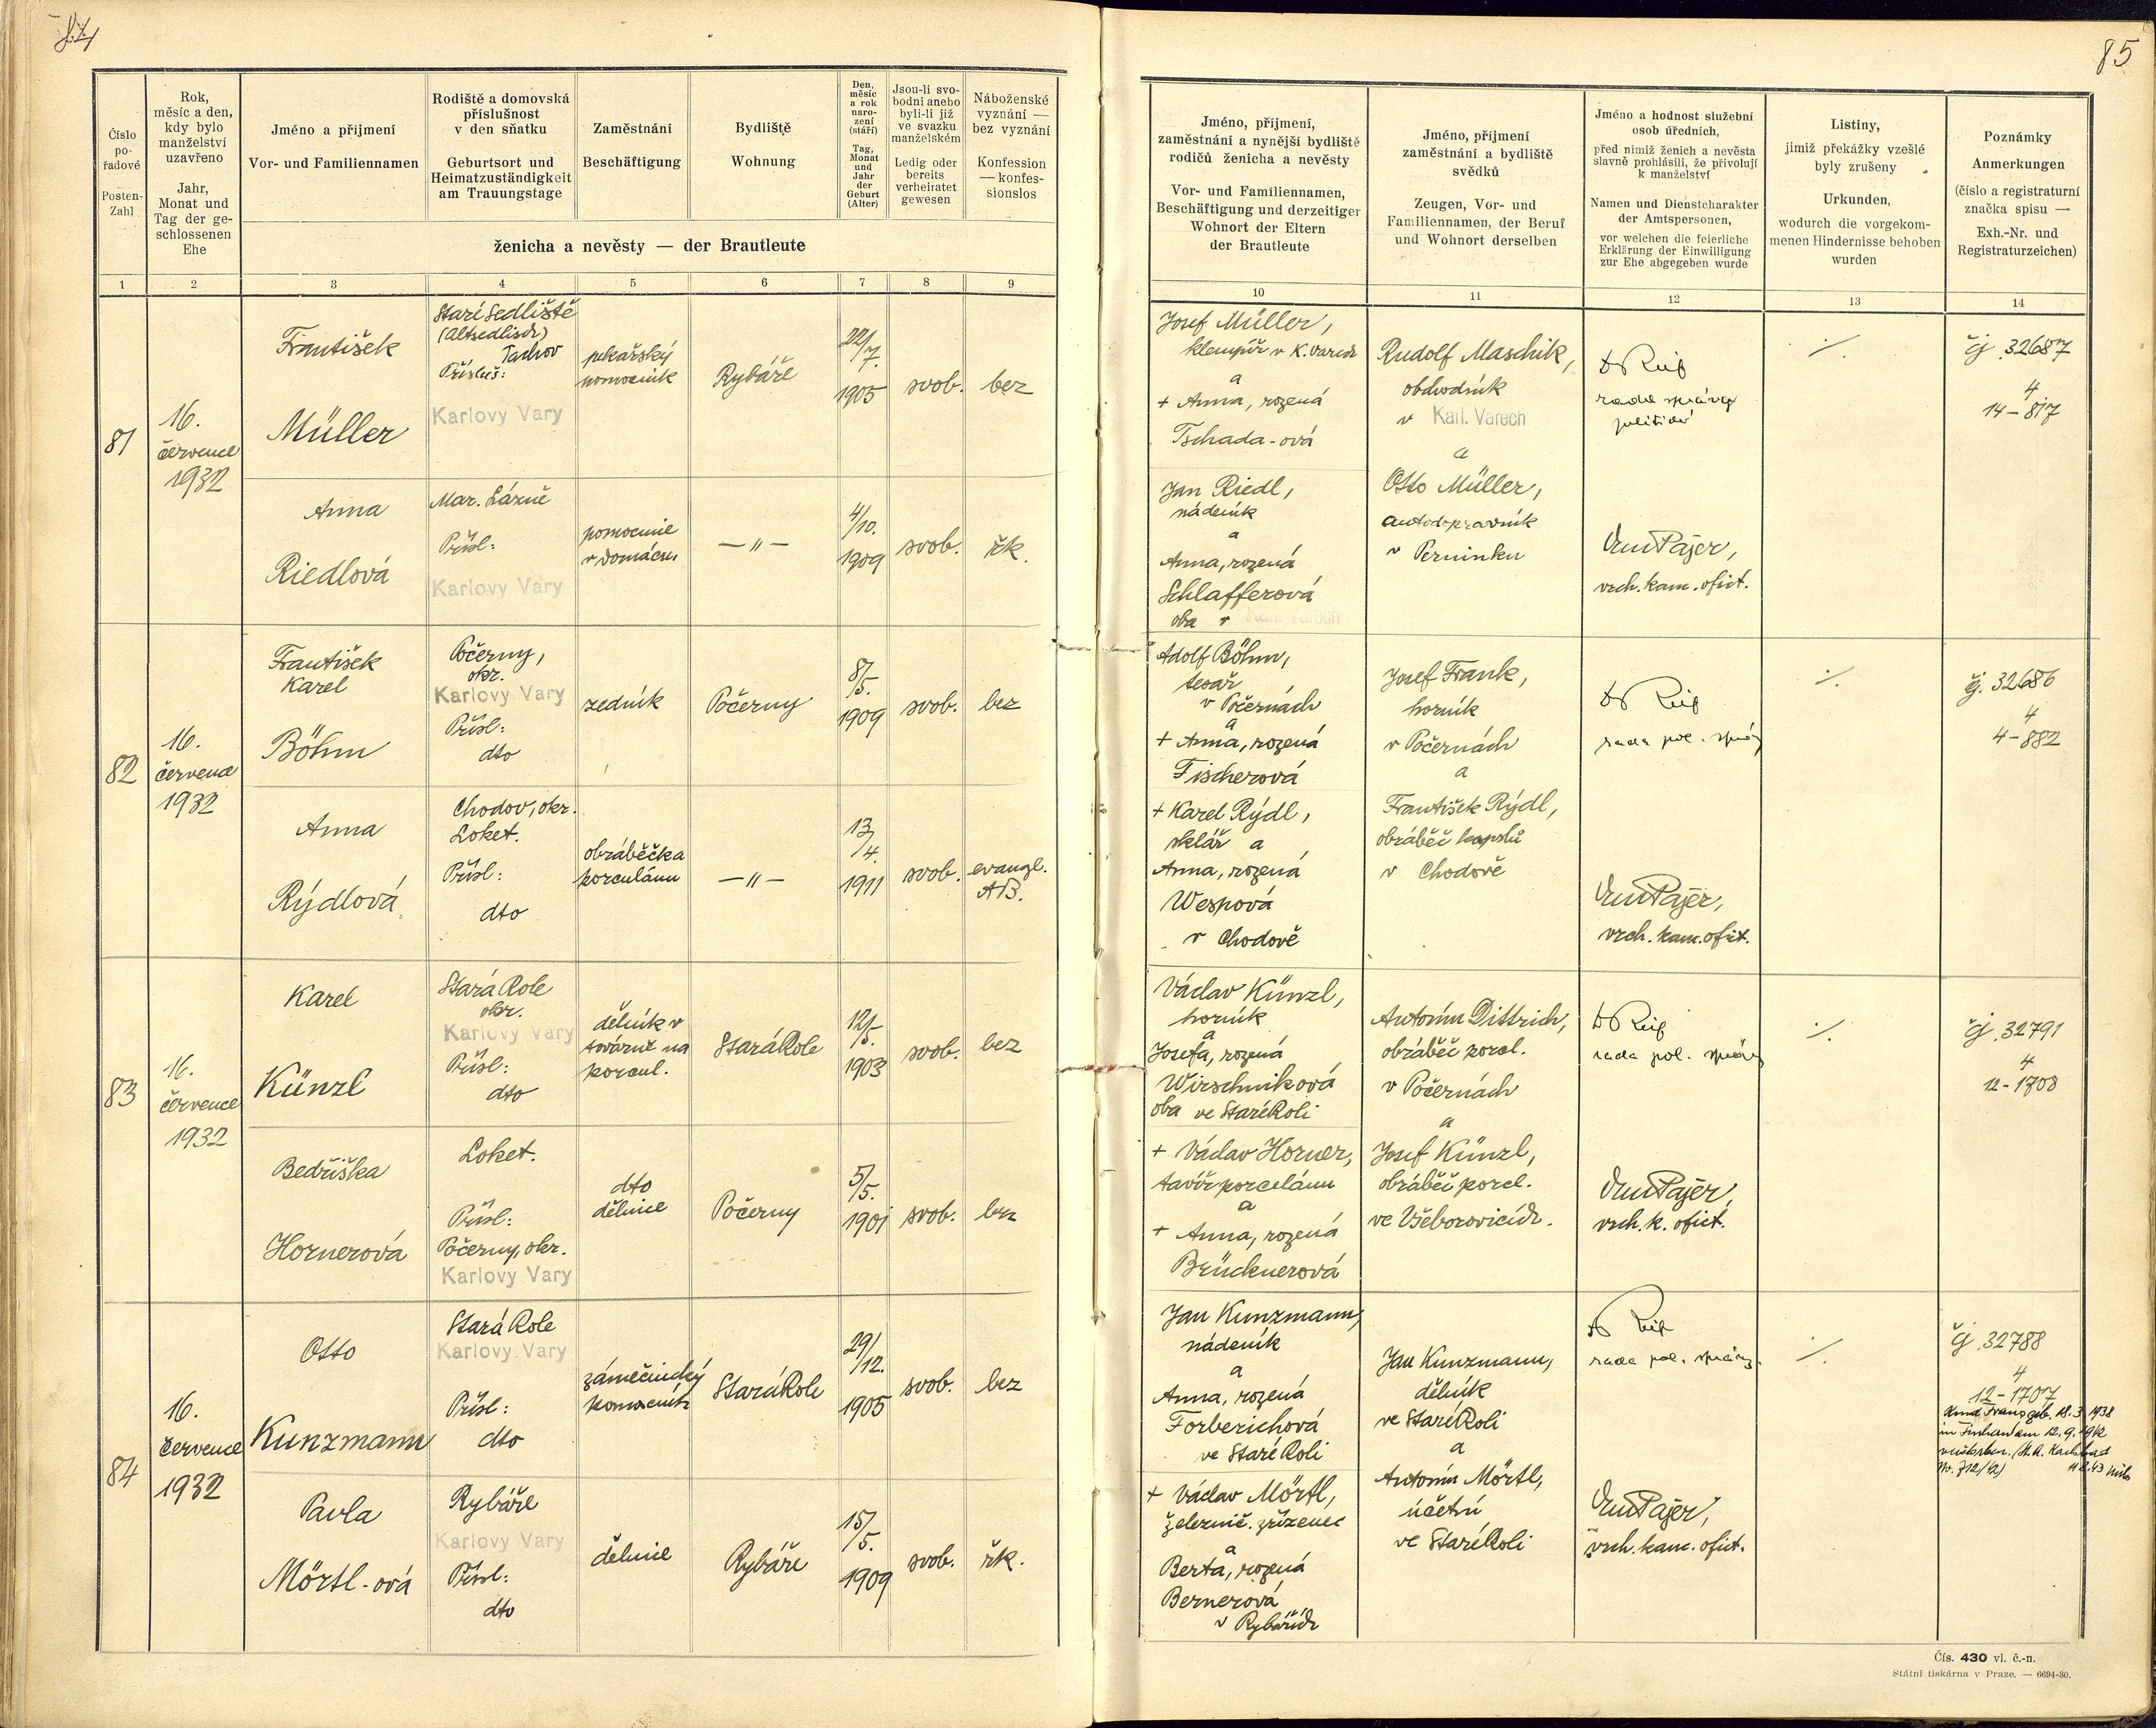 84
85
Číslo
po-
řadové
Posten-
Zahl
Rok,
měsíc a den,
kdy bylo
manželství
uzavřeno
Jahr,
Monat und
Tag der ge-
schlossenen
Ehe
Jméno a přijmení
Vor- und Familiennamen
Rodiště a domovská
příslušnost
v den sňatku
Geburtsort und
Heimatzuständigkeit
am Trauungstage
Zaměstnání
Beschäftigung
Bydliště
Wohnung
Den,
měsíc
a rok
naro-
zení
(stáří)
Tag,
Monat
und
Jahr
der
Geburt
(Alter)
Jsou-li svo-
bodni anebo
byli-li již
ve svazku
manželském
Ledig oder
bereits
verheiratet
gewesen
Náboženské
vyznání —
bez vyznání
Konfession
— konfes-
sionslos
ženicha a nevěsty — der Brautleute
Jméno, příjmení,
zaměstnání a nynější bydliště
rodičů ženicha a nevěsty
Vor- und Familiennamen,
Beschäftigung und derzeitiger
Wohnort der Eltern
der Brautleute
Jméno, přijmení
zaměstnání a bydliště
svědků
Zeugen, Vor- und
Familiennamen, der Beruf
und Wohnort derselben
Jméno a hodnost služební
osob úředních,
před nimiž ženich a nevěsta
slavně prohlásili, že přivolují
k manželství
Namen und Dienstcharakter
der Amtspersonen,
vor welchen die feierliche
Erklärung der Einwilligung
zur Ehe abgegeben wurde
Listiny,
jimiž překážky vzešlé
byly zrušeny
Urkunden,
wodurch die vorgekom-
menen Hindernisse behoben
wurden
Poznámky
Anmerkungen
(číslo a registraturní
značka spisu —
Exh.-Nr. und
Registraturzeichen)
1 2 3 4 5 6 7 8 9 10 11 12 13 14
81
16.
července
1932
František
Müller
Staré Sedliště
(Altsedlisch)
Tachov
Přísluš:
Karlovy Vary
pekařský
pomocník
Rybáře
22/
7.
1905
svob.
bez
Josef Müller,
klempíř v K. Varech
a
+ Anna, rozená
Tschada-ová
Rudolf Maschik,
obchodník
v Karl. Varech
a
Otto Müller,
autodopravník
v Perninku
rada správy
politické
./.
čj. 32687
4
14-817
Anna
Riedlová
Mar. Lázně
Přísl:
Karlovy Vary
pomocnice
v domácn.
—"—
4/
10.
1909
svob.
řk.
Jan Riedl,
nádeník
a
Anna, rozená
Schlafferová
oba v Karl. Varech
Pajer,
vrch. kanc. ofict.
82
16.
července
1932
František
Karel
Böhm
Počerny,
okr.
Karlovy Vary
Přísl:
dto
zedník
Počerny
8/
5.
1909
svob.
bez
Adolf Böhm,
tesař
v Počernách
a
+ Anna, rozená
Fischerová
Josef Frank,
horník
v Počernách
a
František Rýdl,
obráběč kapslů
v Chodově
rada pol. správy
./.
čj. 32686
4
4-882
Anna
Rýdlová
Chodov, okr.
Loket.
Přísl:
dto
obráběčka
porculánu
—"—
13/
4.
1911
svob.
evangl.
AB.
+ Karel Rýdl,
sklář a
Anna, rozená
Wespová
v Chodově
Pajer,
vrch. kanc. ofict.
83
16.
července
1932
Karel
Künzl
Stará Role
okr.
Karlovy Vary
Přísl:
dto
dělník v
továrně na
porcul.
Stará Role
12/
5.
1903
svob.
bez
Václav Künzl,
horník
a
Josefa, rozená
Wirschniková
oba ve Staré Roli
Antonín Dittrich,
obráběč porcl.
v Počernách
a
Josef Künzl,
obráběč porcl.
ve Všeborovicích.
rada pol. správy
./.
čj. 32791
4
12-1708
Bedřiška
Hornerová
Loket.
Přísl:
Počerny, okr.
Karlovy Vary
dto
dělnice
Počerny
5/
5.
1901
svob.
bez
+ Václav Horner,
tavíř porcelánu
a
+ Anna, rozená
Brücknerová
Pajer,
vrch. k. ofict.
84
16.
července
1932
Otto
Kunzmann
Stará Role
Karlovy Vary
Přísl:
dto
zámečnický
pomocník
Stará Role
29/
12.
1905
svob.
bez
Jan Kunzmann,
nádeník
a
Anna, rozená
Forberichová
ve Staré Roli
Jan Kunzmann,
dělník
ve Staré Roli
a
Antonín Mörtl,
účetní
ve Staré Roli
rada pol. správy
./.
čj. 32788
4
12-1707
Kind Franz geb. 18.3.1938
in Fischern am 12.9.1942
verstorben. (St. A. Karlsbad
Nr. 712/42)
Pavla
Mörtl-ová
Rybáře
Karlovy Vary
Přísl:
dto
dělnice
Rybáře
15/
5.
1909
svob.
řk.
+ Václav Mörtl,
železnič. zřízenec
a
Berta, rozená
Bernerová
v Rybářích
Pajer,
vrch. kanc. ofict.
Čís. 430 vl. č.-n.
Státní tiskárna v Praze. — 6694-30.